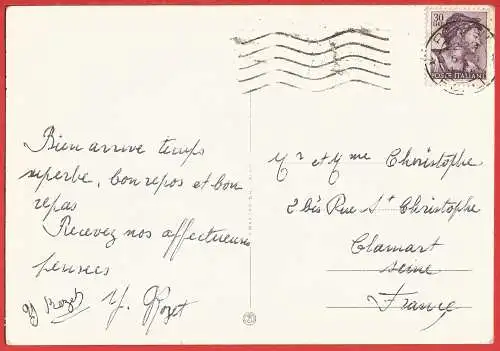 30
POSTE ITALIANE
Bien arrivé temps
superbe, bon repos et bon
repas
Recevez nos affectueuses
pensées
Rozet
Y. Rozet
Mr et Mme Christophe
2 bis Rue St Christophe
Clamart
seine
France